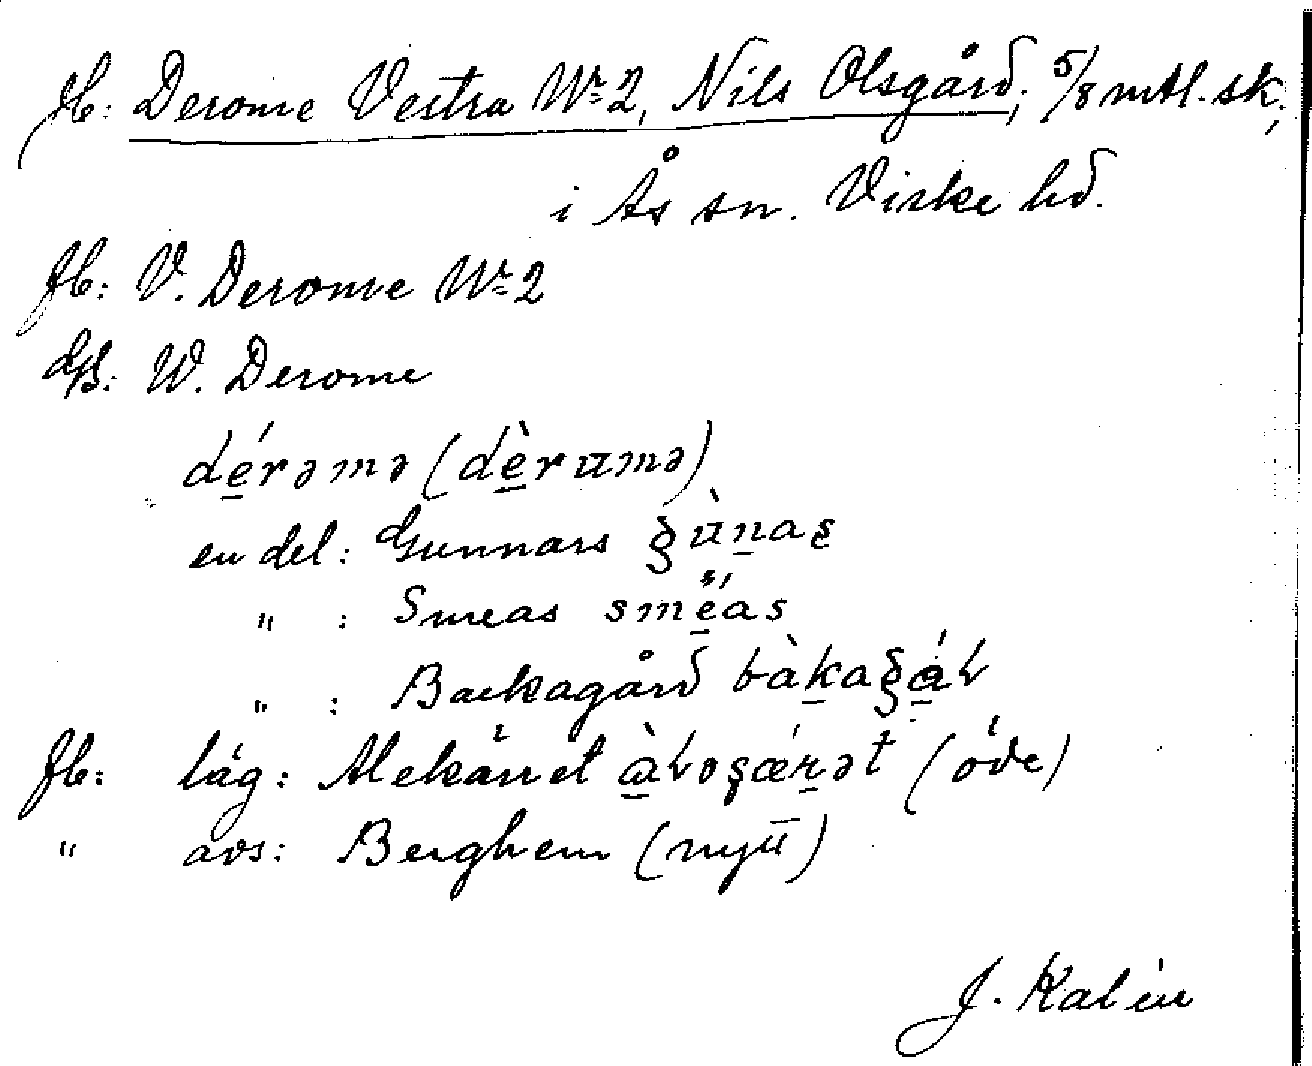 Jb: Derome Västra Nr 2, Nils Olsgård, 5/8 mtl. sk,
i Ås sn. Viske hd.
Jb: V. Derome Nr 2
GB: W. Derome
dé̱rəmə (dè̱rumə)
en del: Gunnars
" : Smeas smé̱as
" : Backagård
Jb: läg: Alekärret (öde)
" avs: Berghem (nytt)
J. Kalén